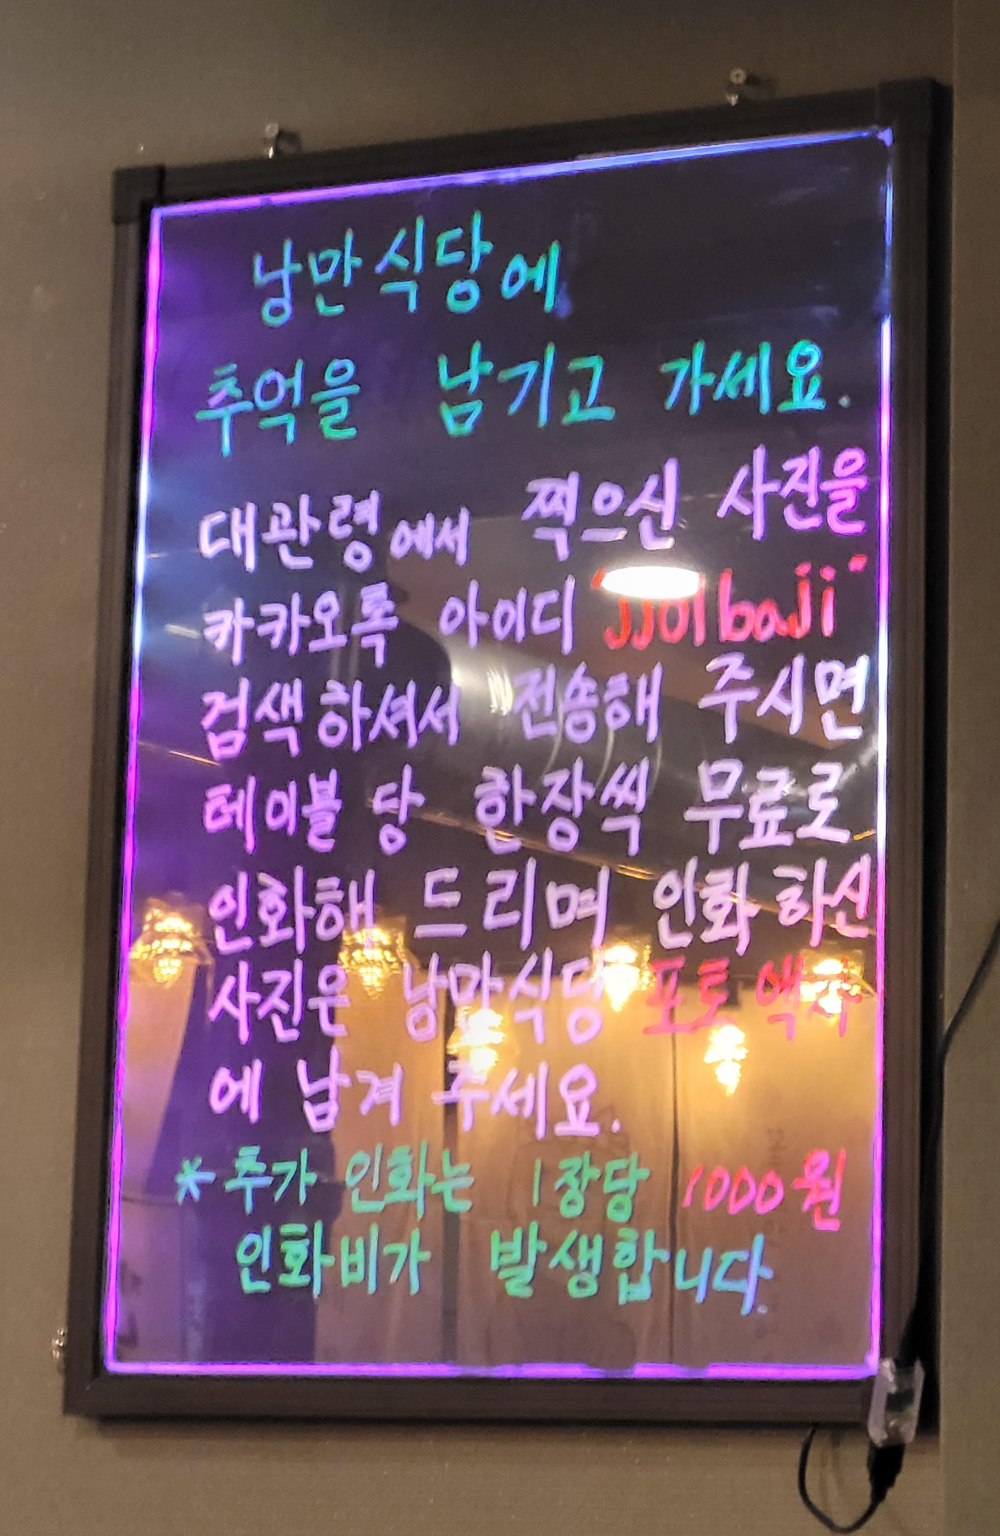 낭만식당에
추억을 남기고 가세요.
대관령에서 찍으신 사진을
카카오톡 아이디 "jjolbaji"
검색하셔서 전송해 주시면
테이블 당 한장씩 무료로
인화해 드리며 인화 하신
사진은 낭만식당 포토 액자
에 남겨 주세요.
* 추가 인화는 1장당 1000원
인화비가 발생합니다.